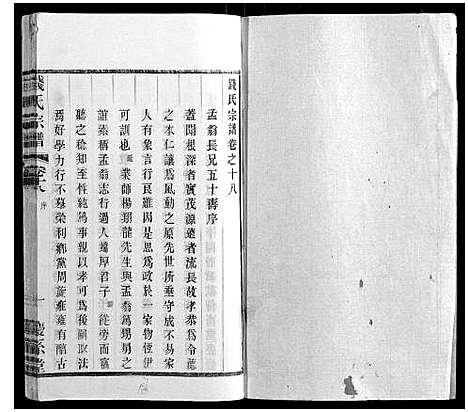 錢氏宗譜卷之十八
孟翁長兄五十壽序
蓋聞根深者實茂源遠者流長故孝恭爲令德
之本仁讓爲風動之原先世所垂守成不易家
人有象言行良難因是思爲政於一家物恆伊
可訓也 業師楊翊龍先生與孟翁爲甥舅之
等秦栖孟翁志行過人端厚君子 從旁而竊
聽之稔知至性純篤事親以來可爲後嗣取法
焉好學力行不慕榮利鄉黨周旋雍雍有醇古
錢氏宗譜
卷八
序
一